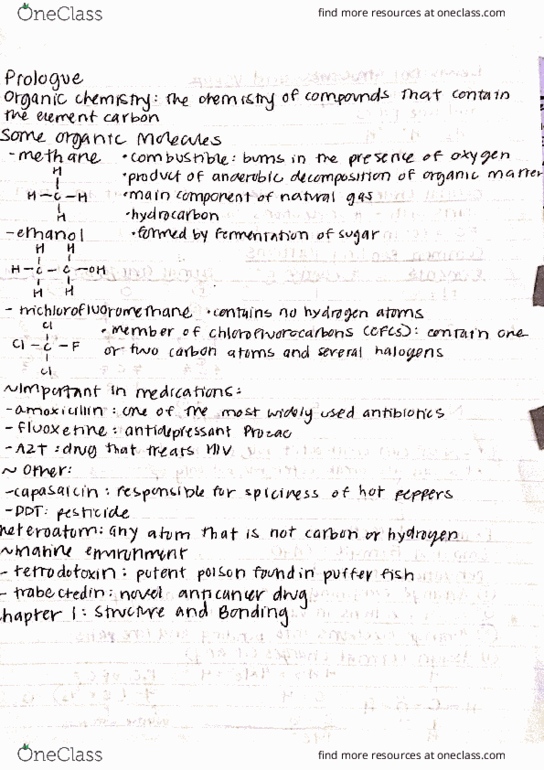 OneClass
find more resources at oneclass.com
Prologue
organic chemistry: the chemistry of compounds that contain
the element carbon
some organic molecules
-methane •combustible: burns in the presence of oxygen
H •product of anaerobic decomposition of organic matter
H-C-H •main component of natural gas
H •hydrocarbon
-ethanol •formed by fermentation of sugar
H H
H-C-C-OH
H H
- trichlorofluoromethane •contains no hydrogen atoms
Cl •member of chlorofluorocarbons (CFCs): contain one
Cl-C-F or two carbon atoms and several halogens
Cl
~Important in medications:
-amoxicillin: one of the most widely used antibiotics
-fluoxetine: antidepressant Prozac
-AZT: drug that treats HIV
~ Other:
-capasaicin: responsible for spiciness of hot peppers
-DDT: pesticide
heteroatom: any atom that is not carbon or hydrogen
~marine environment
- tetrodotoxin: potent poison found in puffer fish
- trabectedin: novel anticancer drug
hapter 1: structure and Bonding
OneClass
find more resources at oneclass.com